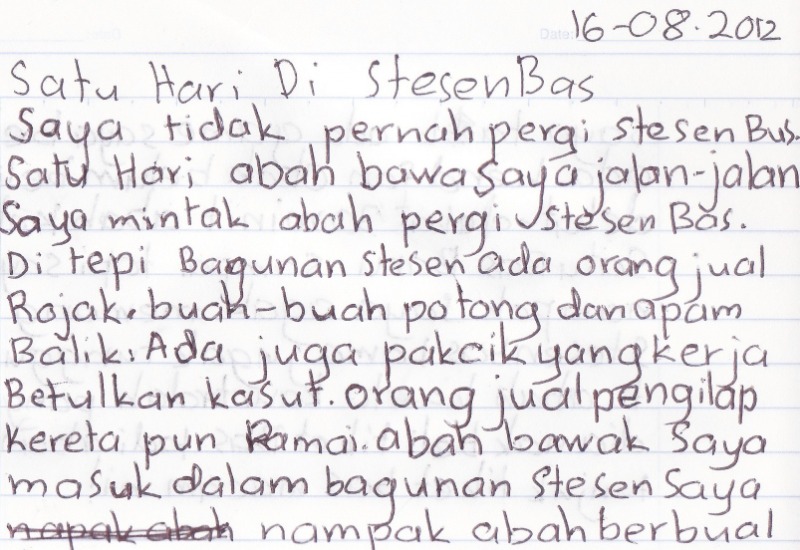 Date:
16-08.2012
Satu Hari Di Stesen Bas
Saya tidak pernah pergi stesen Bus.
Satu Hari abah bawa saya jalan-jalan
Saya mintak abah pergi stesen Bas.
Di tepi Bagunan stesen ada orang jual
Rojak. buah-buah potong dan apam
Balik. Ada juga pakcik yang kerja
Betulkan kasut. orang jual pengilap
kereta pun Ramai. abah bawak saya
masuk dalam bagunan stesen saya
napak abah nampak abah berbual